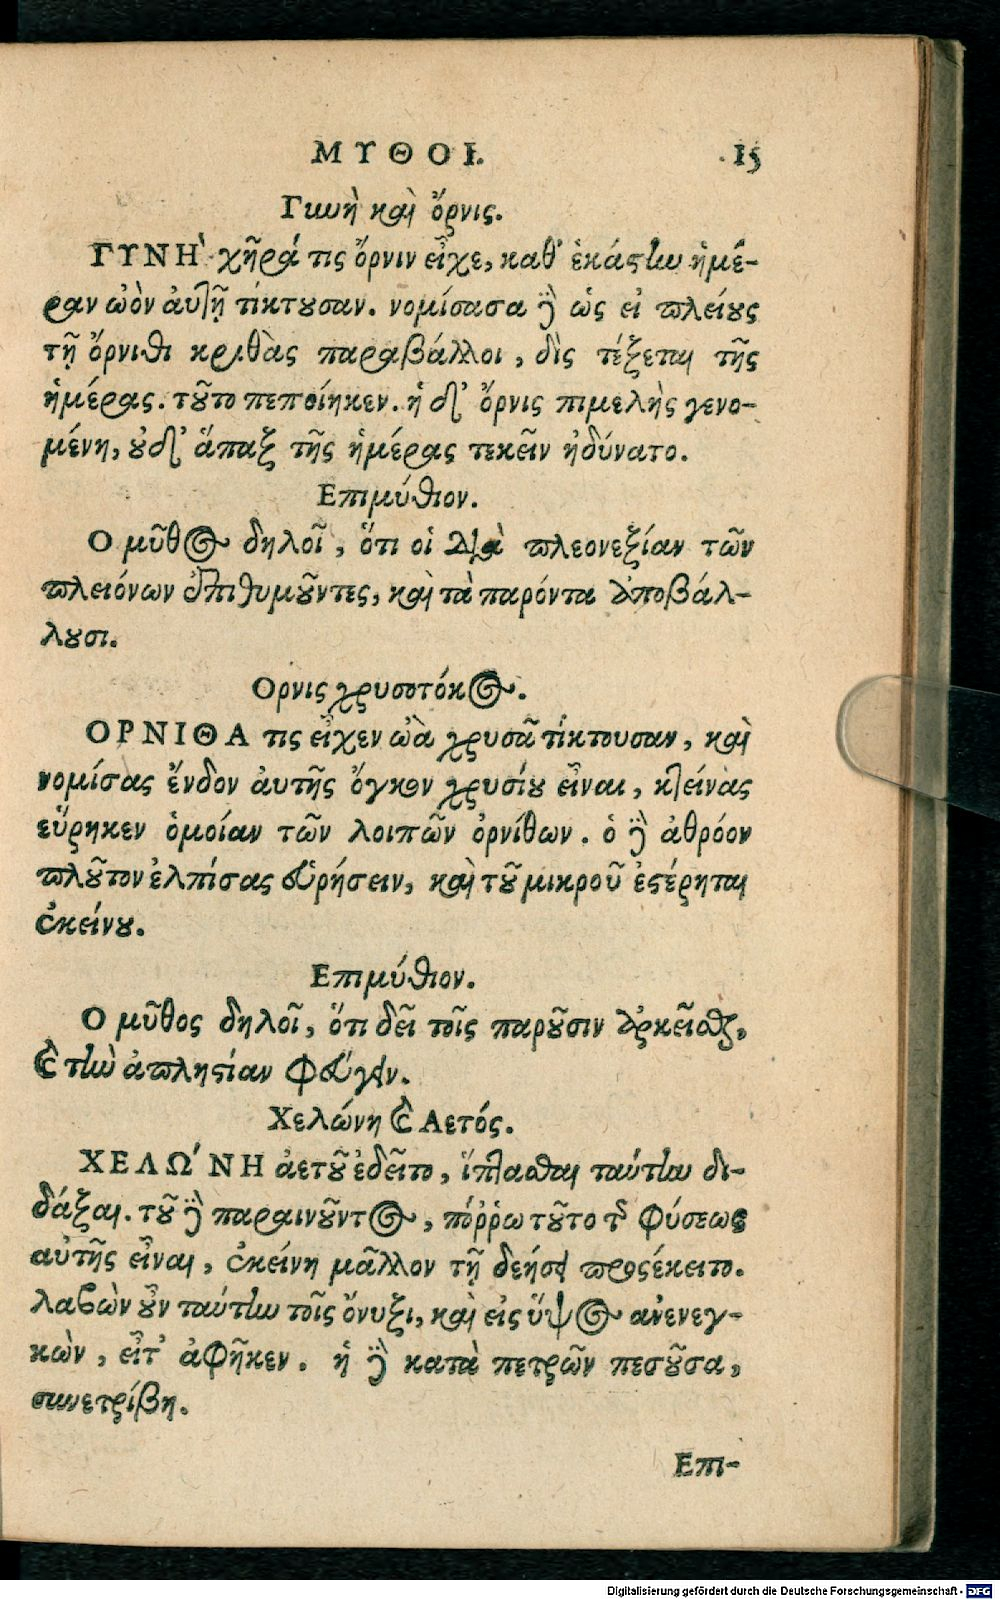 ΜΥΘΟΙ. 15
Γυνὴ καὶ ὄρνις.
ΓΥΝῊ χῆρά τις ὄρνιν εἶχε, καθ' ἑκάστην ἡμέ-
ραν ὠὸν ἀυτῇ τίκτουσαν. νομίσασα δὲ ὡς εἰ πλείους
τῇ ὄρνιθι κριθὰς παραβάλλοι, δὶς τέξεται τῆς
ἡμέρας. τοῦτο πεποίηκεν. ἡ δ' ὄρνις πιμελὴς γενο-
μένη, οὐδ' ἅπαξ τῆς ἡμέρας τεκεῖν ἠδύνατο.
Επιμύθιον.
Ο μῦθος δηλοῖ, ὅτι οἱ διὰ πλεονεξίαν τῶν
πλειόνων ἐπιθυμοῦντες, καὶ τὰ παρόντα ἀποβάλ-
λουσι.
Ορνις χρυσοτόκος.
ΟΡΝΙΘΑ τις εἶχεν ὠὰ χρυσᾶ τίκτουσαν, καὶ
νομίσας ἔνδον ἀυτῆς ὄγκον χρυσίου εἶναι, κτείνας
εὕρηκεν ὁμοίαν τῶν λοιπῶν ὀρνίθων. ὁ δὲ ἀθρόον
πλοῦτον ἐλπίσας εὑρήσειν, καὶ τοῦ μικροῦ ἐστέρηται
ἐκείνου.
Επιμύθιον.
Ο μῦθος δηλοῖ, ὅτι δεῖ τοῖς παροῦσιν ἀρκεῖσθαι,
καὶ τὴν ἀπληστίαν φεύγειν.
Χελώνη καὶ Αετός.
ΧΕΛΩ΄ΝΗ ἀετοῦ ἐδεῖτο, ἵπτασθαι ταύτην δι-
δάξαι. τοῦ δὲ παραινοῦντος, πόῤῥω τοῦτο τῆς φύσεως
αὐτῆς εἶναι, ἐκείνη μᾶλλον τῇ δεήσει προσέκειτο.
λαβὼν οὖν ταύτην τοῖς ὄνυξι, καὶ εἰς ὕψος ἀνενεγ-
κὼν, εἶτ' ἀφῆκεν. ἡ δὲ κατὰ πετρῶν πεσοῦσα,
συνετρίβη.
Επι-
Digitalisierung gefördert durch die Deutsche Forschungsgemeinschaft - DFG